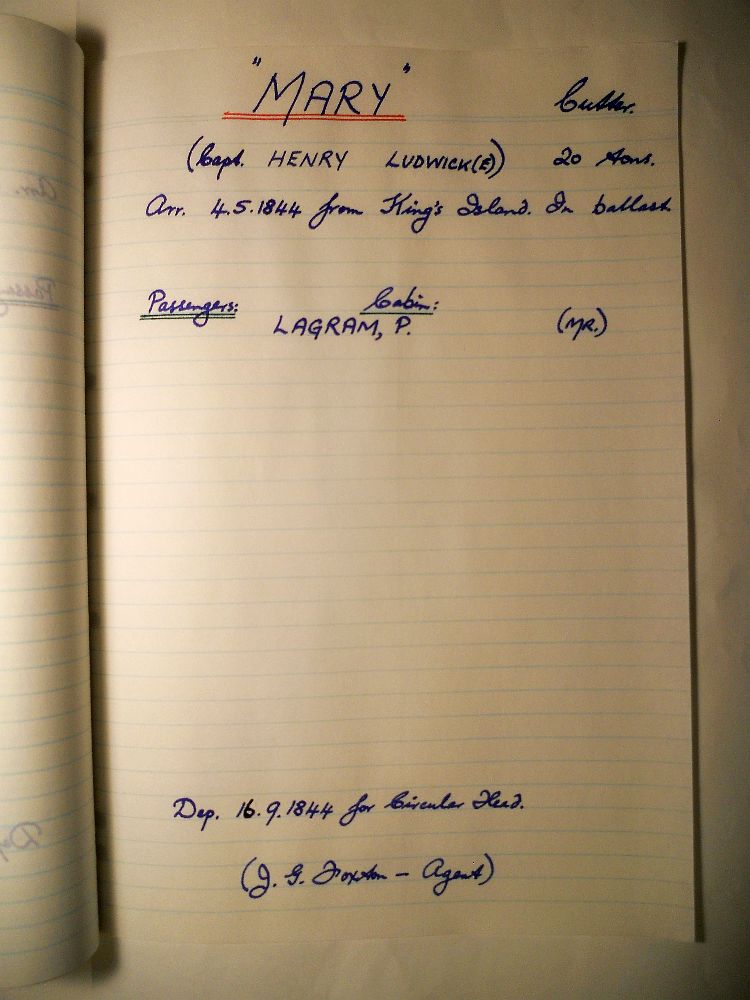 "MARY" Cutter.
(Capt. HENRY LUDWICK(E)) 20 tons.
Arr. 4.5.1844 from King's Island. In ballast
Passengers: Cabin:
LAGRAM, P. (MR.)
Dep. 16.9.1844 for Circular Head.
(J. G. Foxton - Agent)